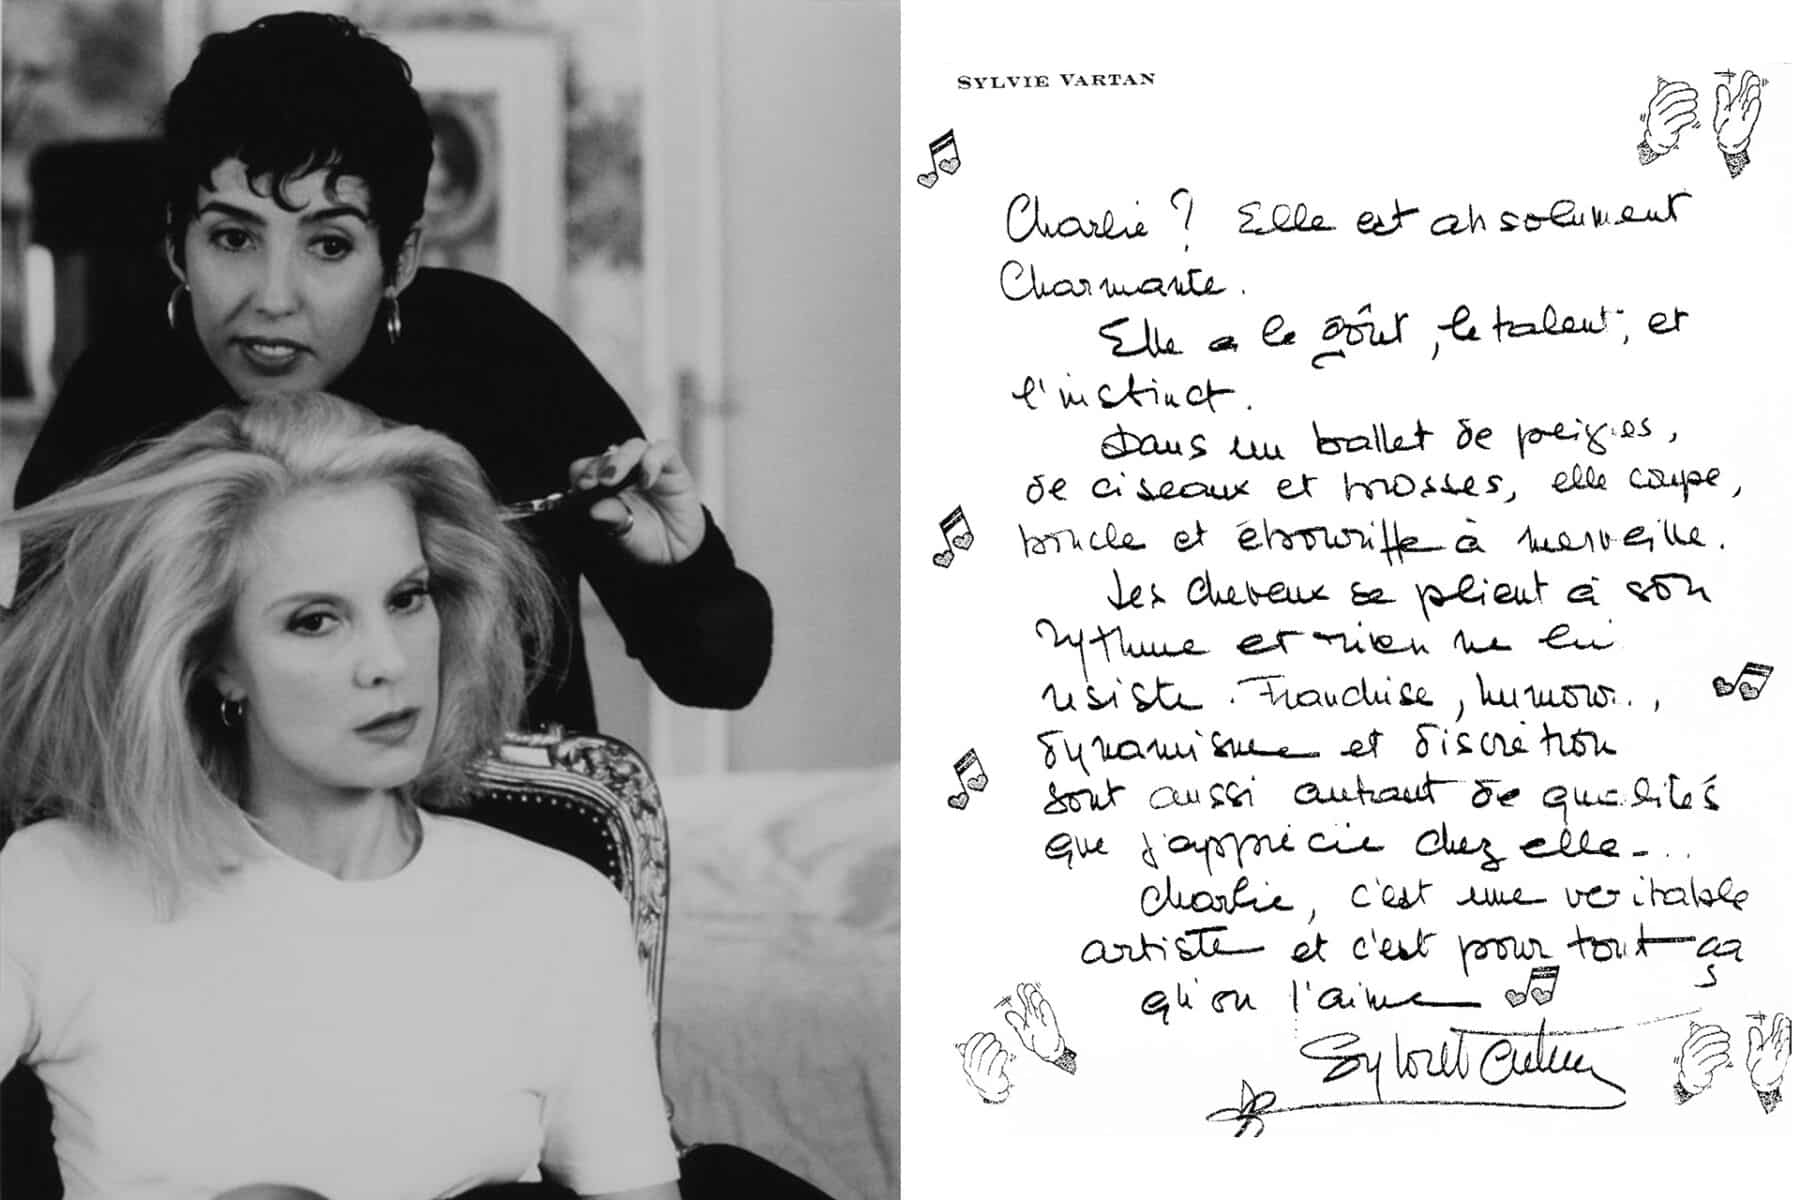 SYLVIE VARTAN
Charlie ? Elle est absolument
Charmante.
Elle a le goût, le talent, et
l'instinct.
Dans un ballet de peignes,
de ciseaux et brosses, elle coupe,
boucle et ébouriffe à merveille.
Les cheveux se plient à son
rythme et rien ne lui
résiste. Franchise, humour,
dynamisme et discrétion
sont aussi autant de qualités
que j'apprécie chez elle...
Charlie, c'est une veritable
artiste et c'est pour tout ça
qu'on l'aime
Sylvie Vartan